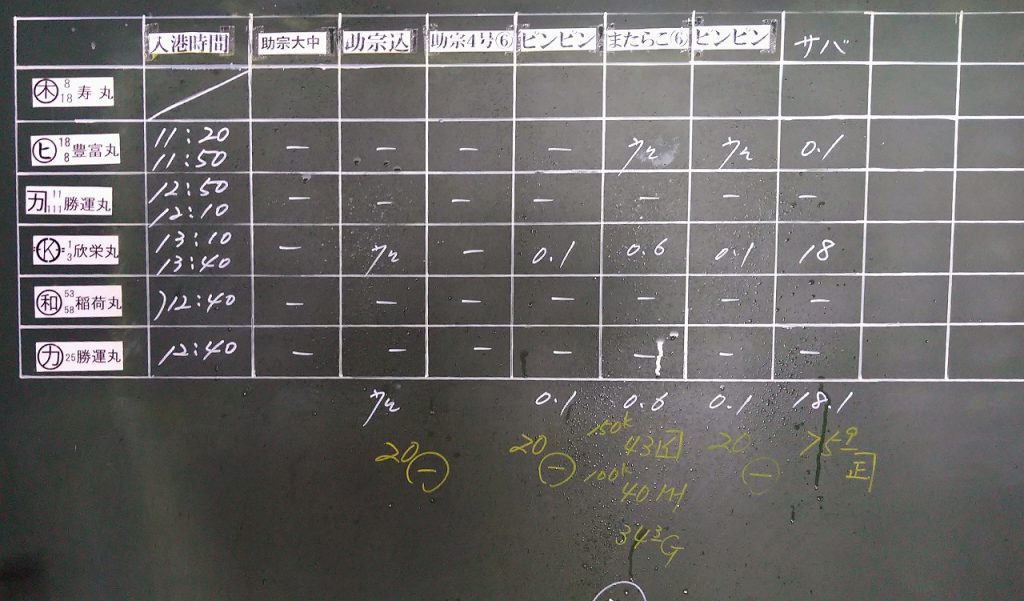 入港時間 助宗大中 助宗込 助宗4号⑥ ピンピン またらこ⑥ ピンピン サバ
㊍ 8 18 寿丸
ヒ 18 8 豊富丸 11:20 11:50 — — — — 0.1
カ 11 111 勝運丸 12:50 12:10 — — — — — — —
K 1 3 欣栄丸 13:10 13:40 — — 0.1 0.6 0.1 18
和 53 58 稲荷丸 12:40 — — — — — — —
カ 25 勝運丸 12:40 — — — — — — —
0.1 0.6 0.1 18.1
150k
20 ㊀ 20 ㊀ 43 20 ㊀ 759 正
100k
40
343G